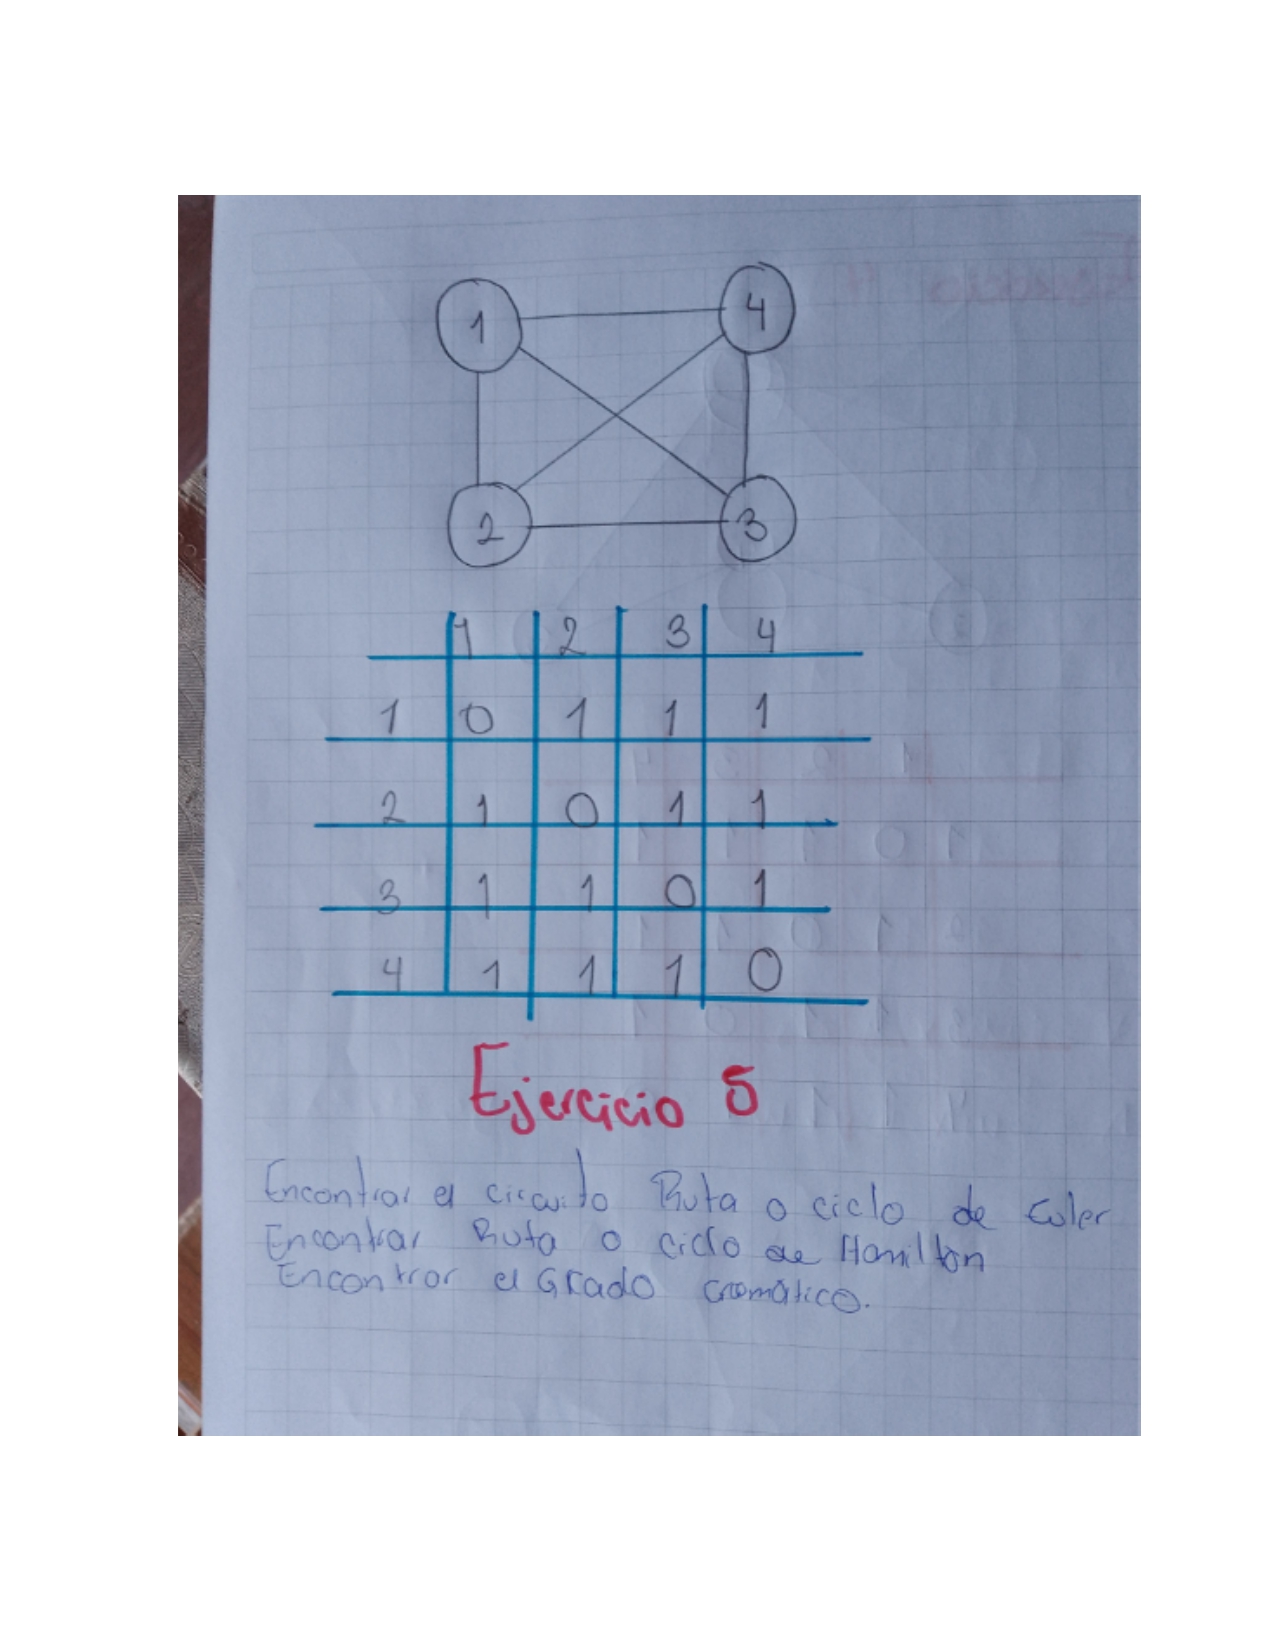 1 4
2 3
1 2 3 4
1 0 1 1 1
2 1 0 1 1
3 1 1 0 1
4 1 1 1 0
Ejercicio 5
Encontrar el circuito Ruta o ciclo de Euler
Encontrar Ruta o ciclo de Hamilton
Encontrar el Grado cromático.